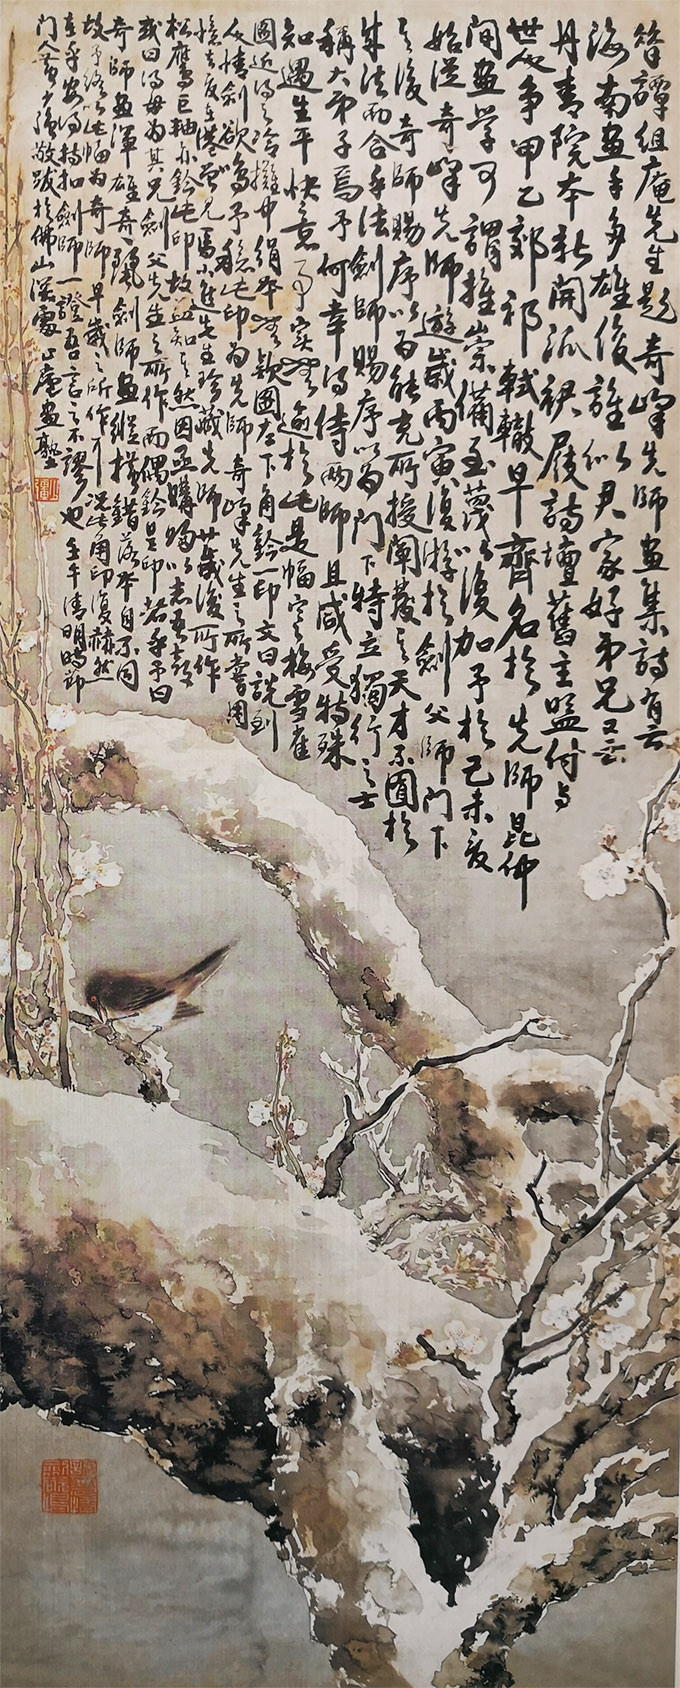 譚組庵先生題奇峰先師畫集詩有云
海南畫手多雄俊誰似君家好弟兄又云
丹青院本新開派裙屐詩壇舊主盟付与
世人爭甲乙郊祁軾轍早齊名於先師昆仲
間畫學可謂推崇備至蔑以復加予於己未夏
始從奇峰先師遊歲丙寅復游於劍父師門下
之後奇師賜序以為能充所授闡發其天才不囿於
成法而合乎法劍師賜序以為門下特立獨行之士
稱大弟子焉予何幸得侍兩師且咸受特殊
知遇生平快意事實無逾於此是幅寒梅雪雀
圖近得之冷攤中絹本無款圖左下角鈐一印文曰說到
人情劍欲鳴予稔此印為先師奇峰先生之所嘗用
憶去夏在港曾見馬小進先生珍藏先師廿歲後所作
松鷹巨軸亦鈐此印故益知其然因亟購歸以志吾故
或曰得毋為其兄劍父先生之所作而偶鈐是印者乎予曰
奇師畫渾雄奇麗劍師畫縱橫錯落本自不同
故予終以此幅為奇師早歲之所作況此角印復赫然
在乎安得持扣劍師一證吾言之不謬也壬午清明時節
門人黃少強敬跋於佛山深處止庵畫塾